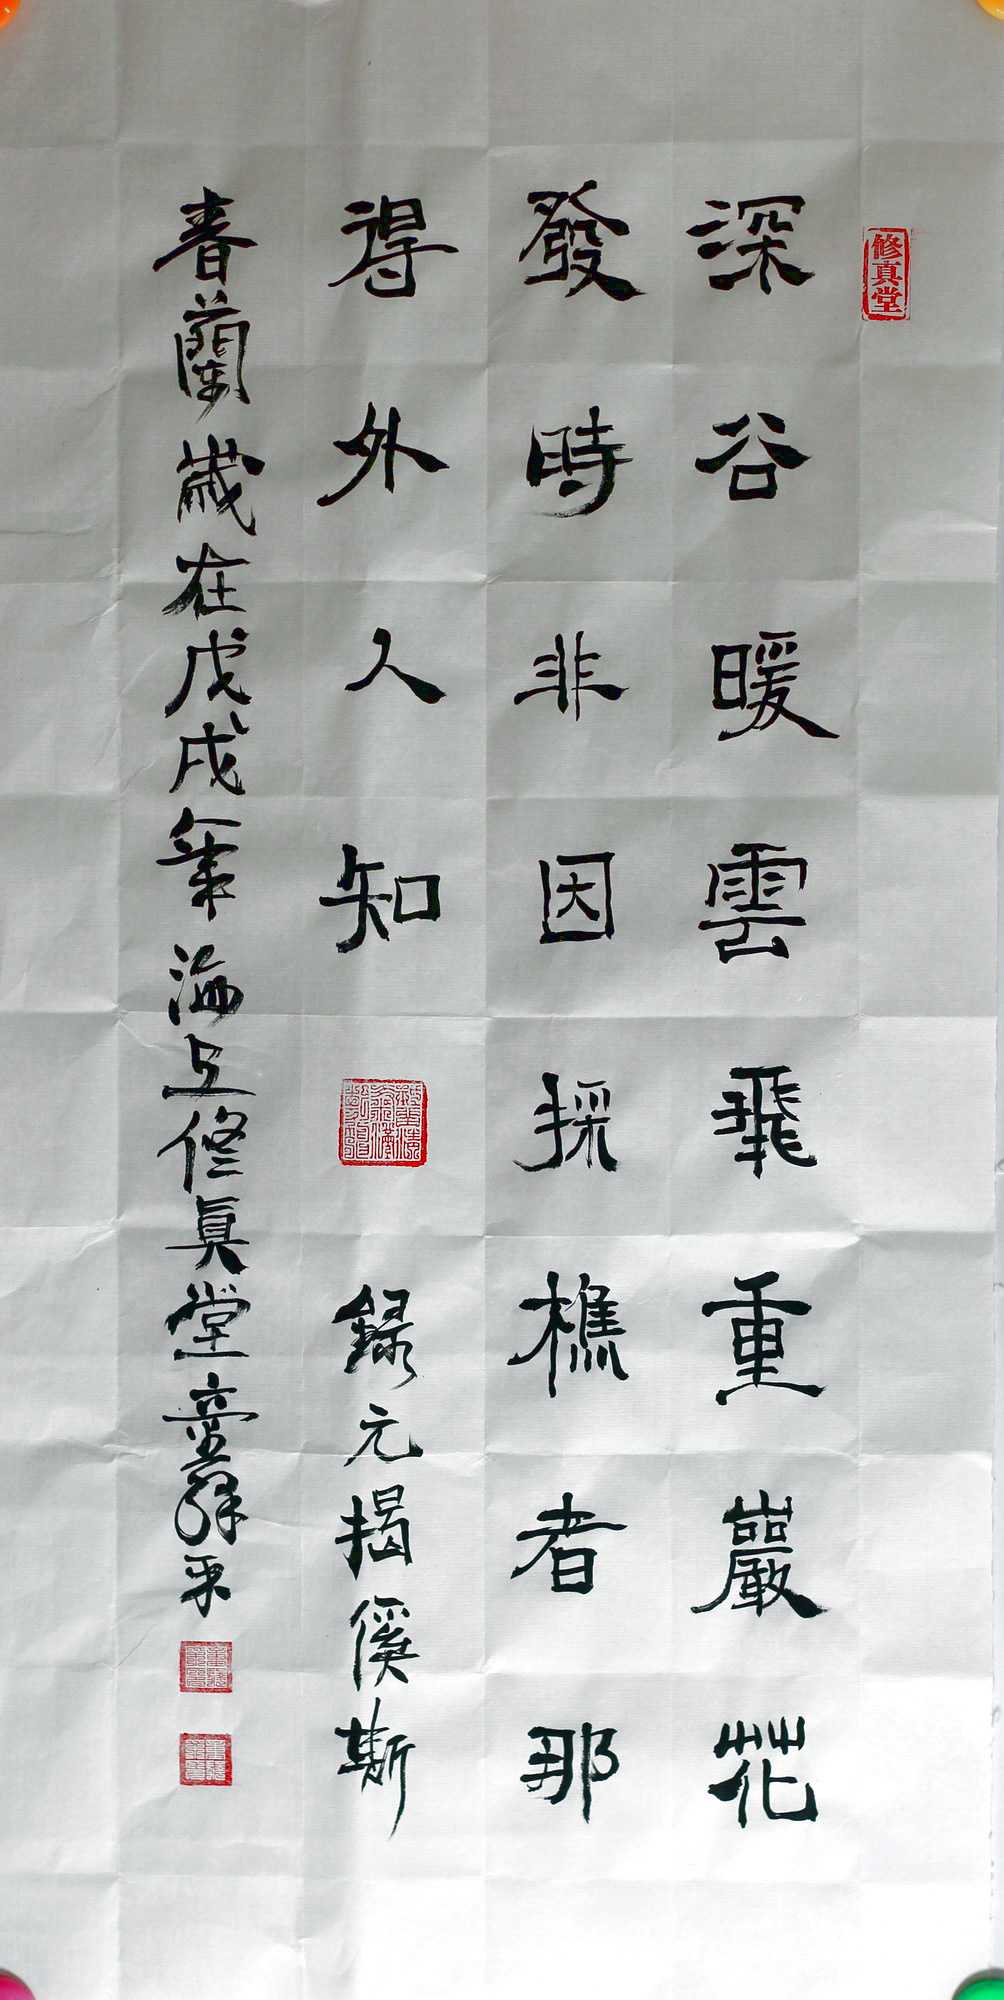 修真堂
深谷暖雲飛重巖花
發時非因採樵者那
得外人知
録元揭傒斯
春蘭歲在戊戌年海上修真堂童釋平